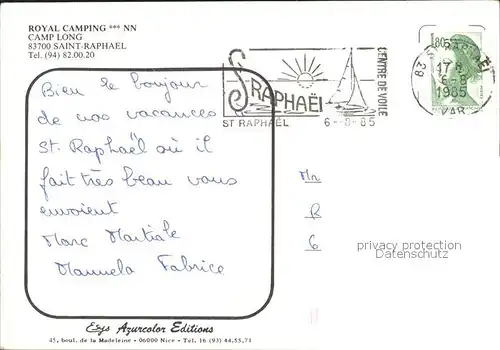 ROYAL CAMPING *** NN
CAMP LONG
83700 SAINT-RAPHAEL
Tel. (94) 82.00.20
Bien le bonjour
de nos vacances
St. Raphaël où il
fait très beau vous
envoient
Marc Martiale
Manuela Fabrice
Elys Azurcolor Editions
45, boul. de la Madeleine - 06000 Nice - Tel. 16 (93) 44.55.71
ST RAPHAËL
CENTRE DE VOILE
ST RAPHAËL 6-8-85
1,80
83 ST RAPHAEL
17 H
6-8
1985
VAR
Mr
B
6
privacy protection
Datenschutz